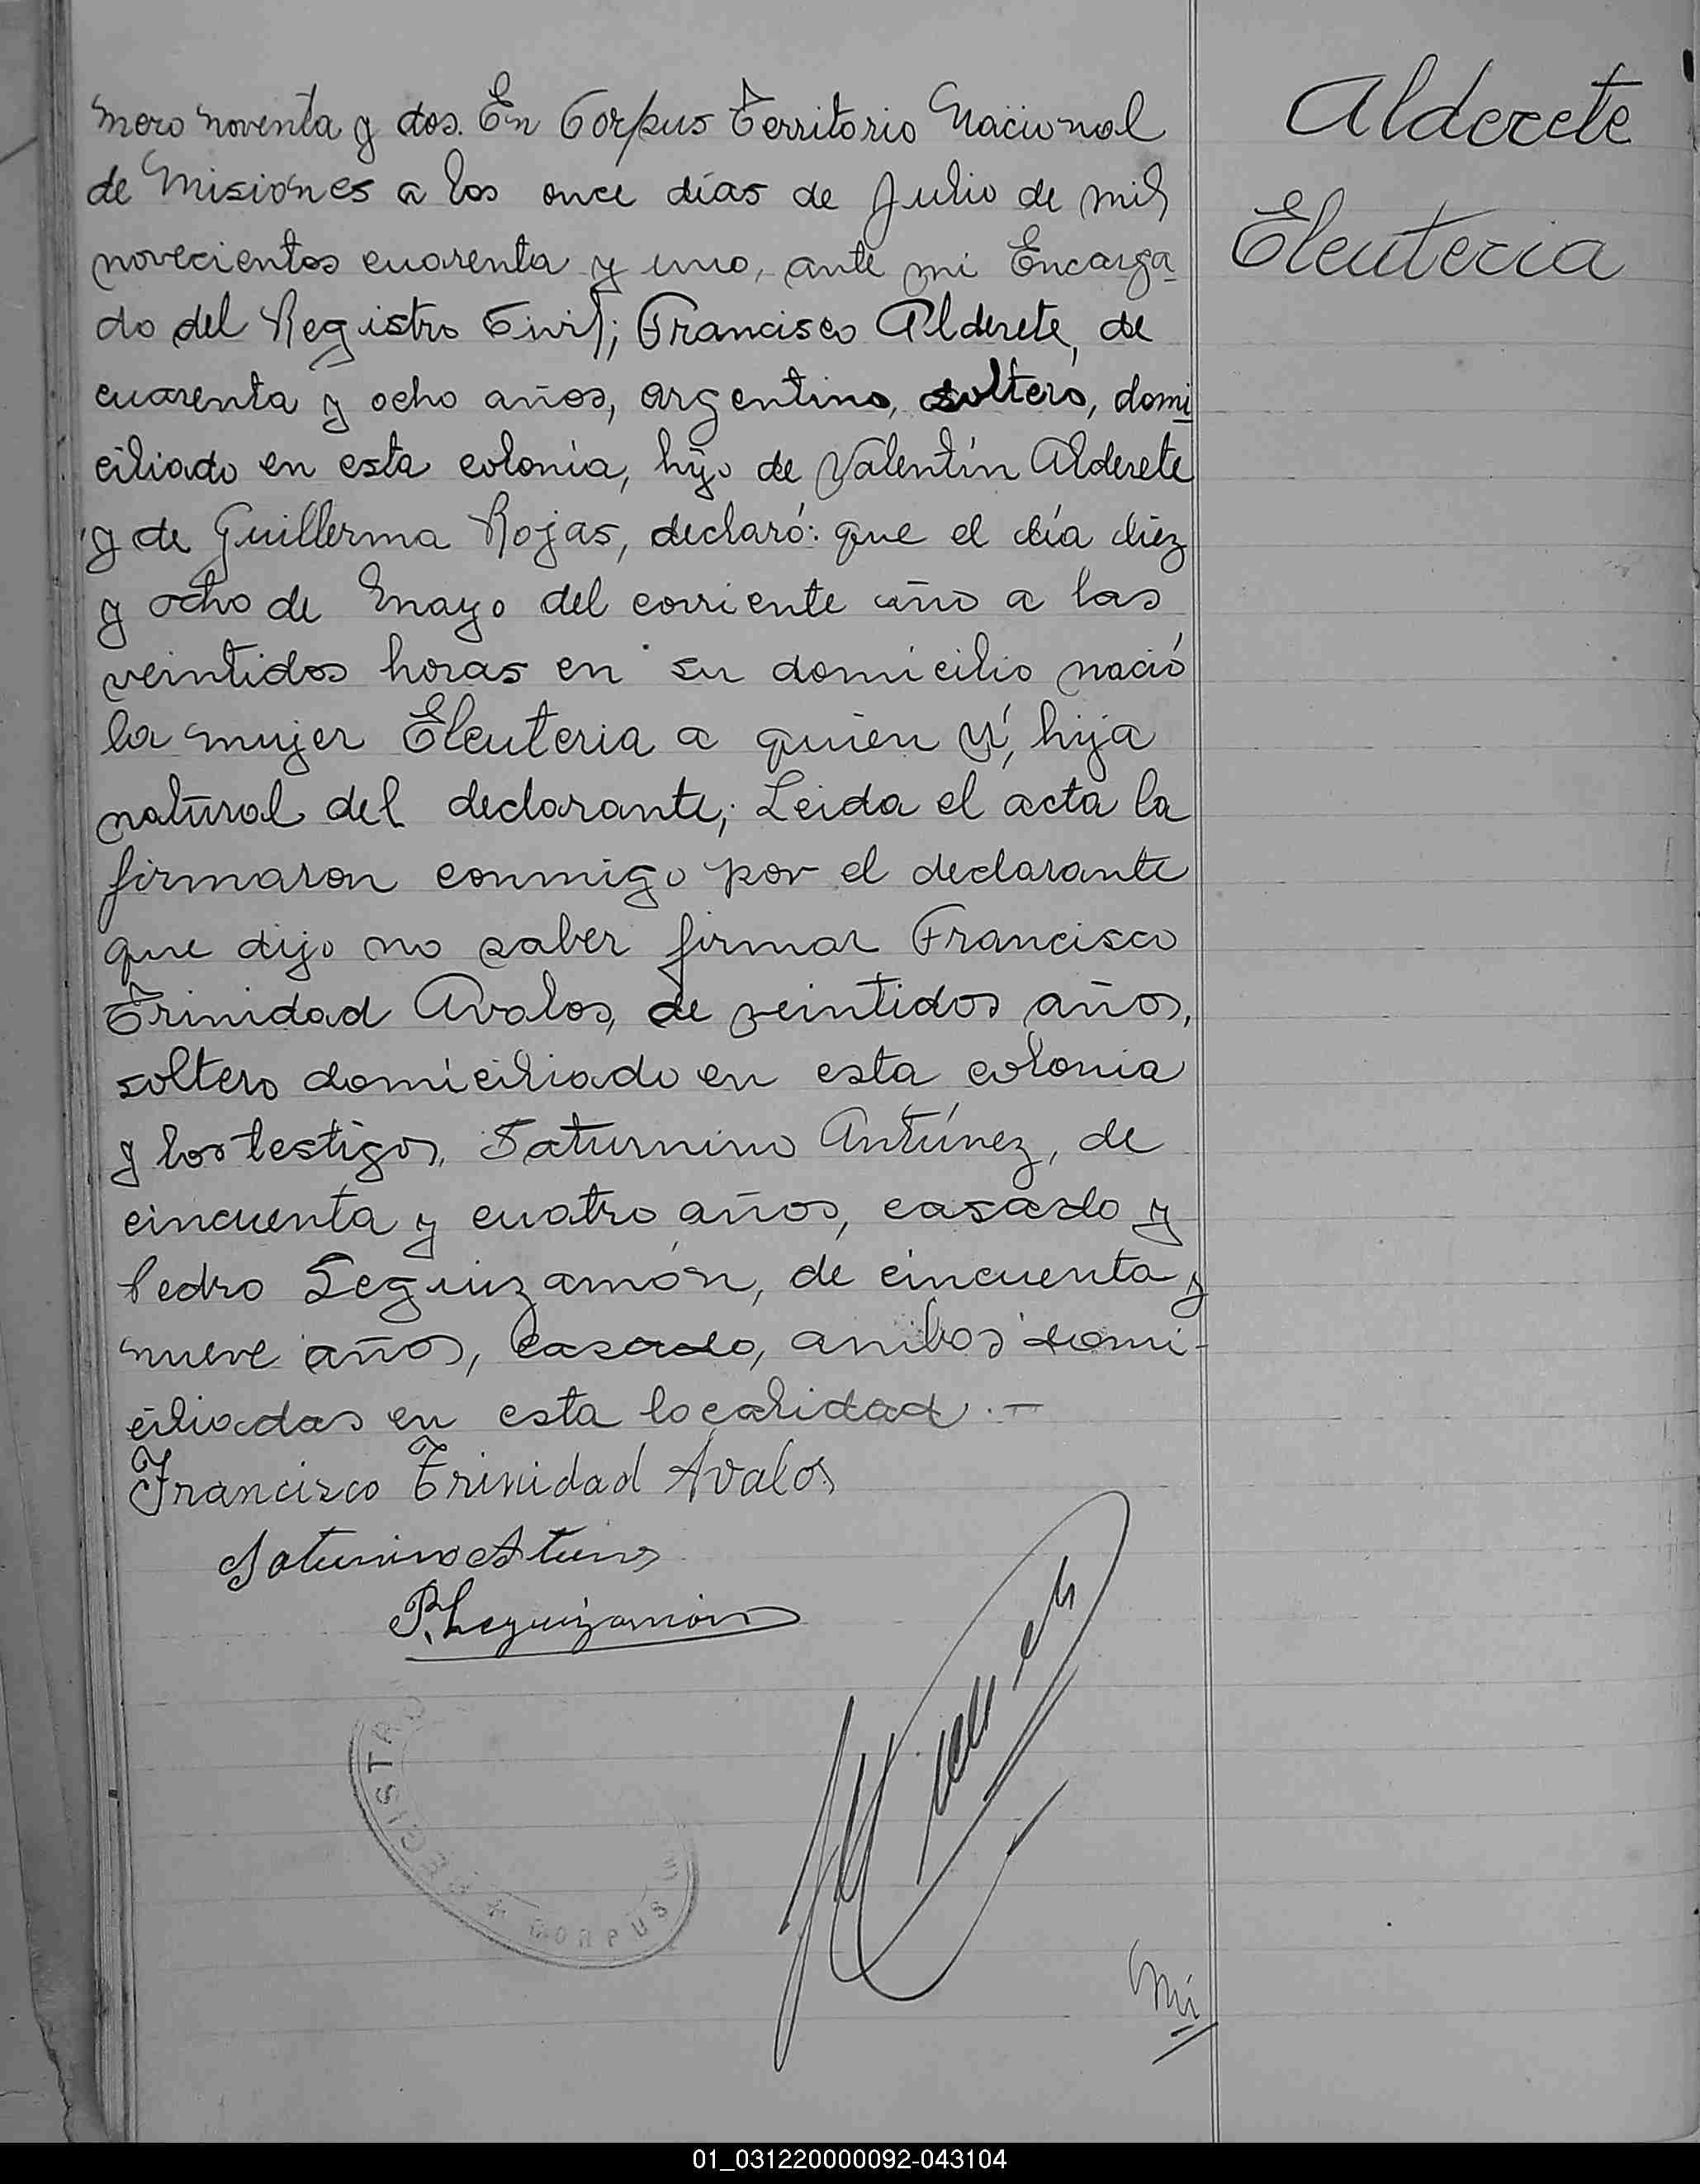 mero noventa y dos. En Corpus Territorio Nacional
de Misiones a los once días de Julio de mil
novecientos cuarenta y uno, ante mi Encarga
do del Registro Civil; Francisco Alderete, de
cuarenta y ocho años, argentino, soltero, domi
ciliado en esta colonia, hijo de Valentín Alderete
y de Guillerma Rojas, declaró: que el día diez
y ocho de Mayo del corriente año a las
veintidos horas en su domicilio nació
la mujer Eleuteria a quien ví, hija
natural del declarante; Leida el acta la
firmaron conmigo por el declarante
que dijo no saber firmar Francisco
Trinidad Avalos, de veintidos años,
soltero domiciliado en esta colonia
y los testigos, Saturnino Antúnez, de
cincuenta y cuatro años, casado y
Pedro Leguizamón, de cincuenta y
nueve años, casado, ambos domi-
ciliados en esta localidad.—
Francisco Trinidad Avalos
P. Leguizamón
REGISTRO
CORPUS
Alderete
Eleuteria
01_031220000092-043104